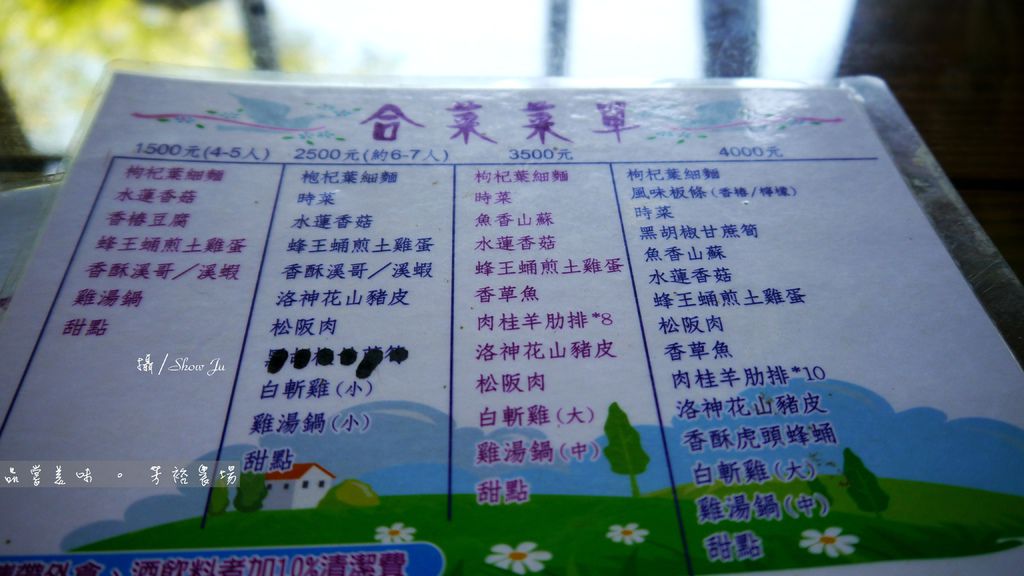 合菜菜單
1500元(4-5人)
枸杞葉細麵
水蓮香菇
香椿豆腐
蜂王蛹煎土雞蛋
香酥溪哥／溪蝦
雞湯鍋
甜點
2500元(約6-7人)
枹杞葉細麵
時菜
水蓮香菇
蜂王蛹煎土雞蛋
香酥溪哥／溪蝦
洛神花山豬皮
松阪肉
白斬雞(小)
雞湯鍋(小)
甜點
3500元
枸杞葉細麵
時菜
魚香山蘇
水蓮香菇
蜂王蛹煎土雞蛋
香草魚
肉桂羊肋排*8
洛神花山豬皮
松阪肉
白斬雞(大)
雞湯鍋(中)
甜點
4000元
枸杞葉細麵
風味板條(香椿/檸檬)
時菜
黑胡椒甘蔗筍
魚香山蘇
水蓮香菇
蜂王蛹煎土雞蛋
松阪肉
香草魚
肉桂羊肋排*10
洛神花山豬皮
香酥虎頭蜂蛹
白斬雞(大)
雞湯鍋(中)
甜點
攝/Show Ju
品嘗美味 。 芳裕農場
帶外食、酒飲料者加10%清潔費